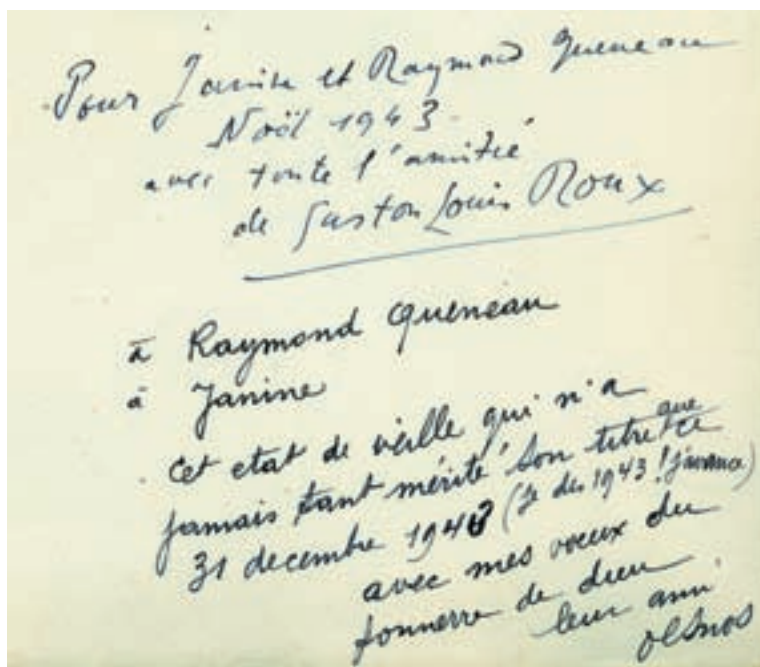 Pour Janine et Raymond Queneau
Noël 1943
avec toute l'amitié
de Gaston Louis Roux
à Raymond Queneau
à Janine
Cet etat de veille qui n'a
jamais tant mérité son titre que ce
31 decembre 1943 (je dis 1943 !
avec mes vœux du
tonnerre de dieu
leur ami
desnos